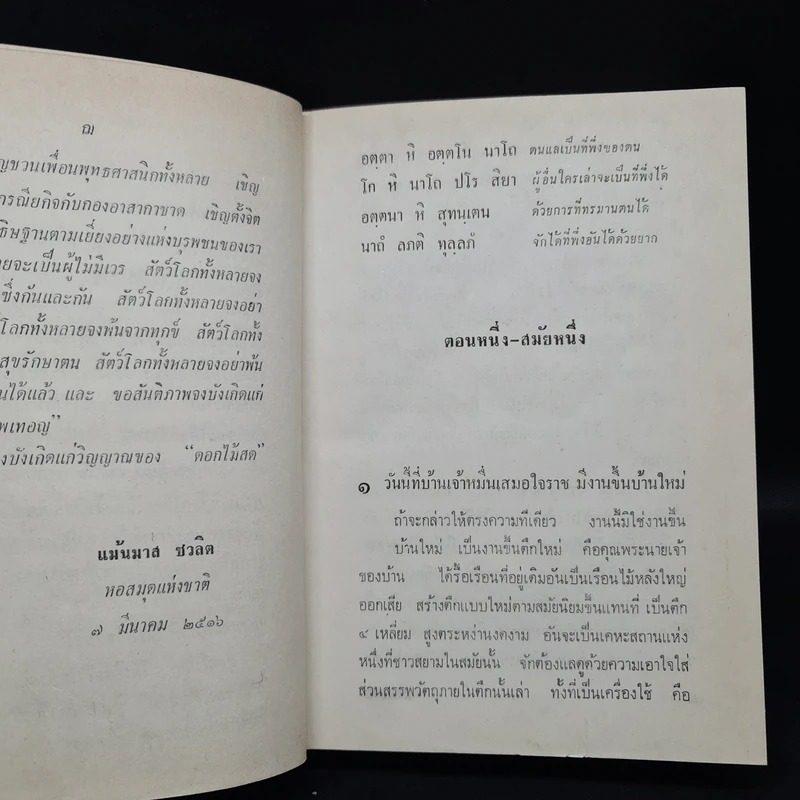 ฌ
ญชวนเพื่อนพุทธศาสนิกทั้งหลาย เชิญ
กรณียกิจกับกองอาสากาชาด เชิญตั้งจิต
ธิษฐานตามเยี่ยงอย่างแห่งบุรพชนของเรา
ยจะเป็นผู้ไม่มีเวร สัตว์โลกทั้งหลายจง
ซึ่งกันและกัน สัตว์โลกทั้งหลายจงอย่า
โลกทั้งหลายจงพ้นจากทุกข์ สัตว์โลกทั้ง
สุขรักษาตน สัตว์โลกทั้งหลายจงอย่าพ้น
นได้แล้ว และ ขอสันติภาพจงบังเกิดแก่
พเทอญ”
งบังเกิดแก่วิญญาณของ “ดอกไม้สด”
แม้นมาส ชวลิต
หอสมุดแห่งชาติ
๗ มีนาคม ๒๕๑๖
อตฺตา หิ อตฺตโน นาโถ ตนแลเป็นที่พึ่งของตน
โก หิ นาโถ ปโร สิยา ผู้อื่นใครเล่าจะเป็นที่พึ่งได้
อตฺตนา หิ สุทนฺเตน ด้วยการที่ทรมานตนได้
นาถํ ลภติ ทุลฺลภํ จักได้ที่พึ่งอันได้ด้วยยาก
ตอนหนึ่ง-สมัยหนึ่ง
๑ วันนี้ที่บ้านเจ้าหมื่นเสมอใจราช มีงานขึ้นบ้านใหม่
ถ้าจะกล่าวให้ตรงความทีเดียว งานนี้มิใช่งานขึ้น
บ้านใหม่ เป็นงานขึ้นตึกใหม่ คือคุณพระนายเจ้า
ของบ้าน ได้รื้อเรือนที่อยู่เดิมอันเป็นเรือนไม้หลังใหญ่
ออกเสีย สร้างตึกแบบใหม่ตามสมัยนิยมขึ้นแทนที่ เป็นตึก
๔ เหลี่ยม สูงตระหง่านงดงาม อันจะเป็นเคหะสถานแห่ง
หนึ่งที่ชาวสยามในสมัยนั้น จักต้องแลดูด้วยความเอาใจใส่
ส่วนสรรพวัตถุภายในตึกนั้นเล่า ทั้งที่เป็นเครื่องใช้ คือ